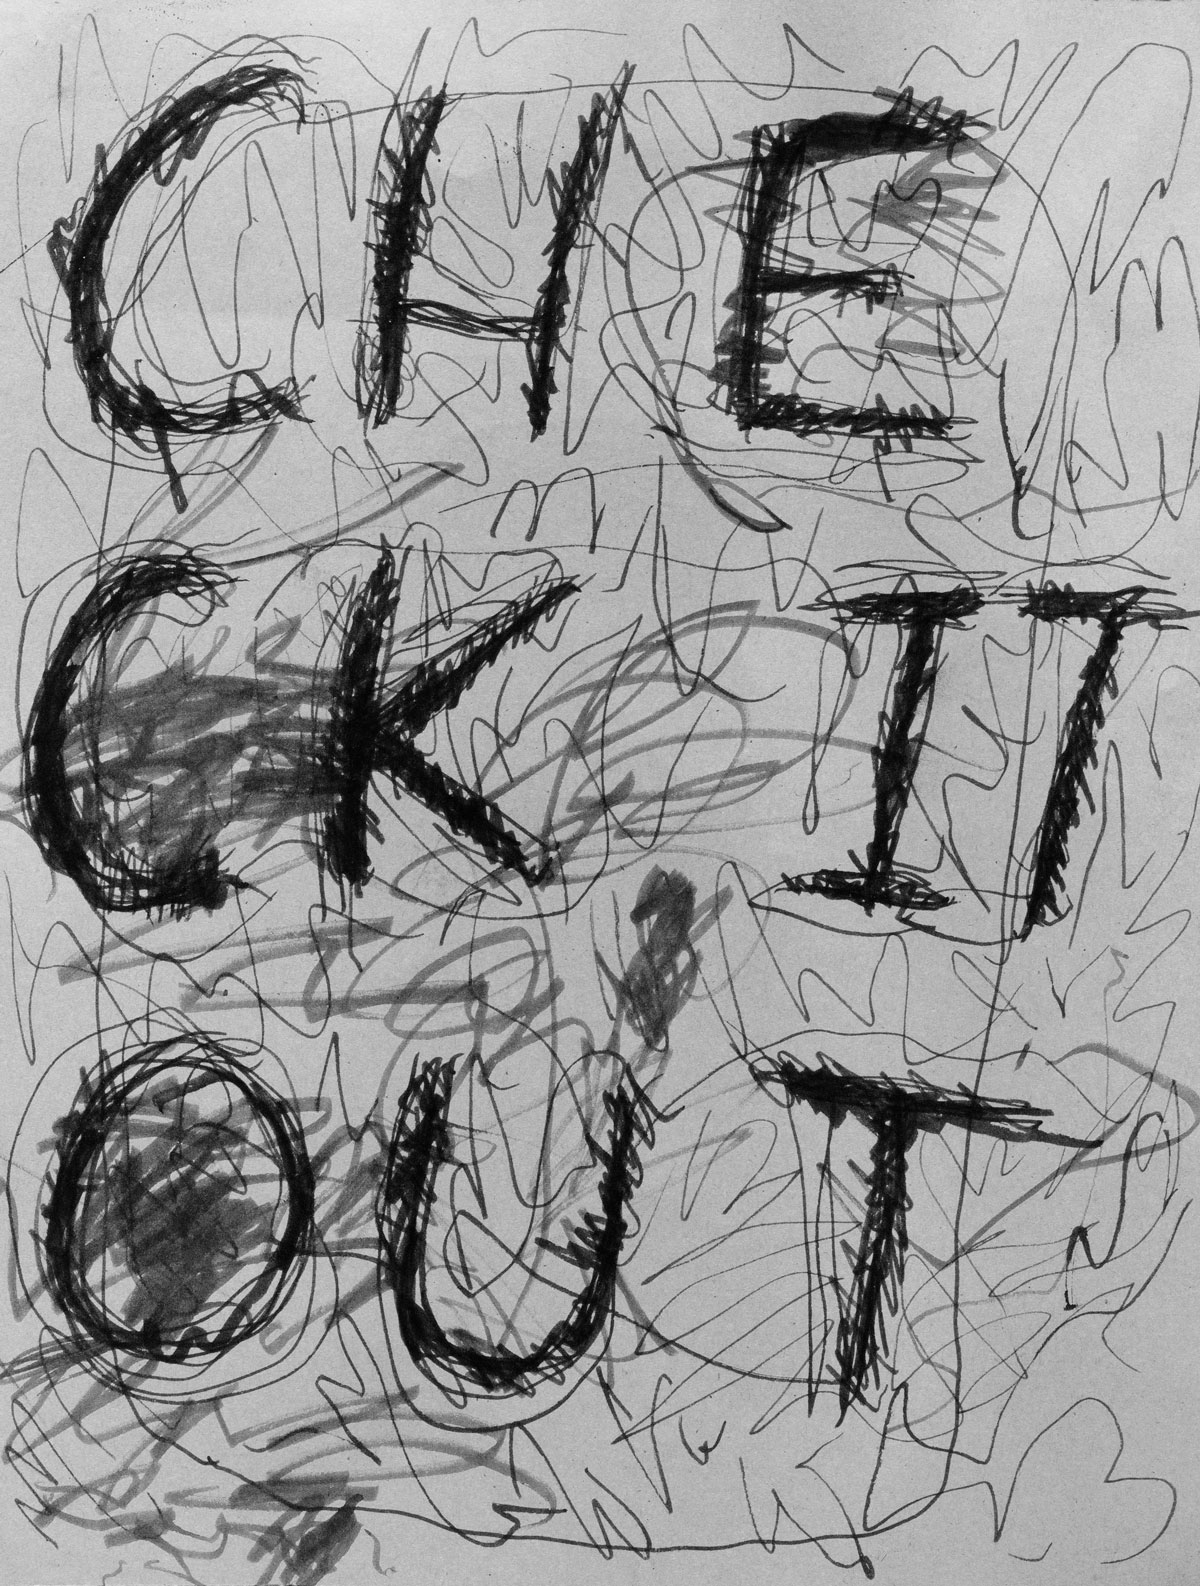 CHE
CK IT
OUT